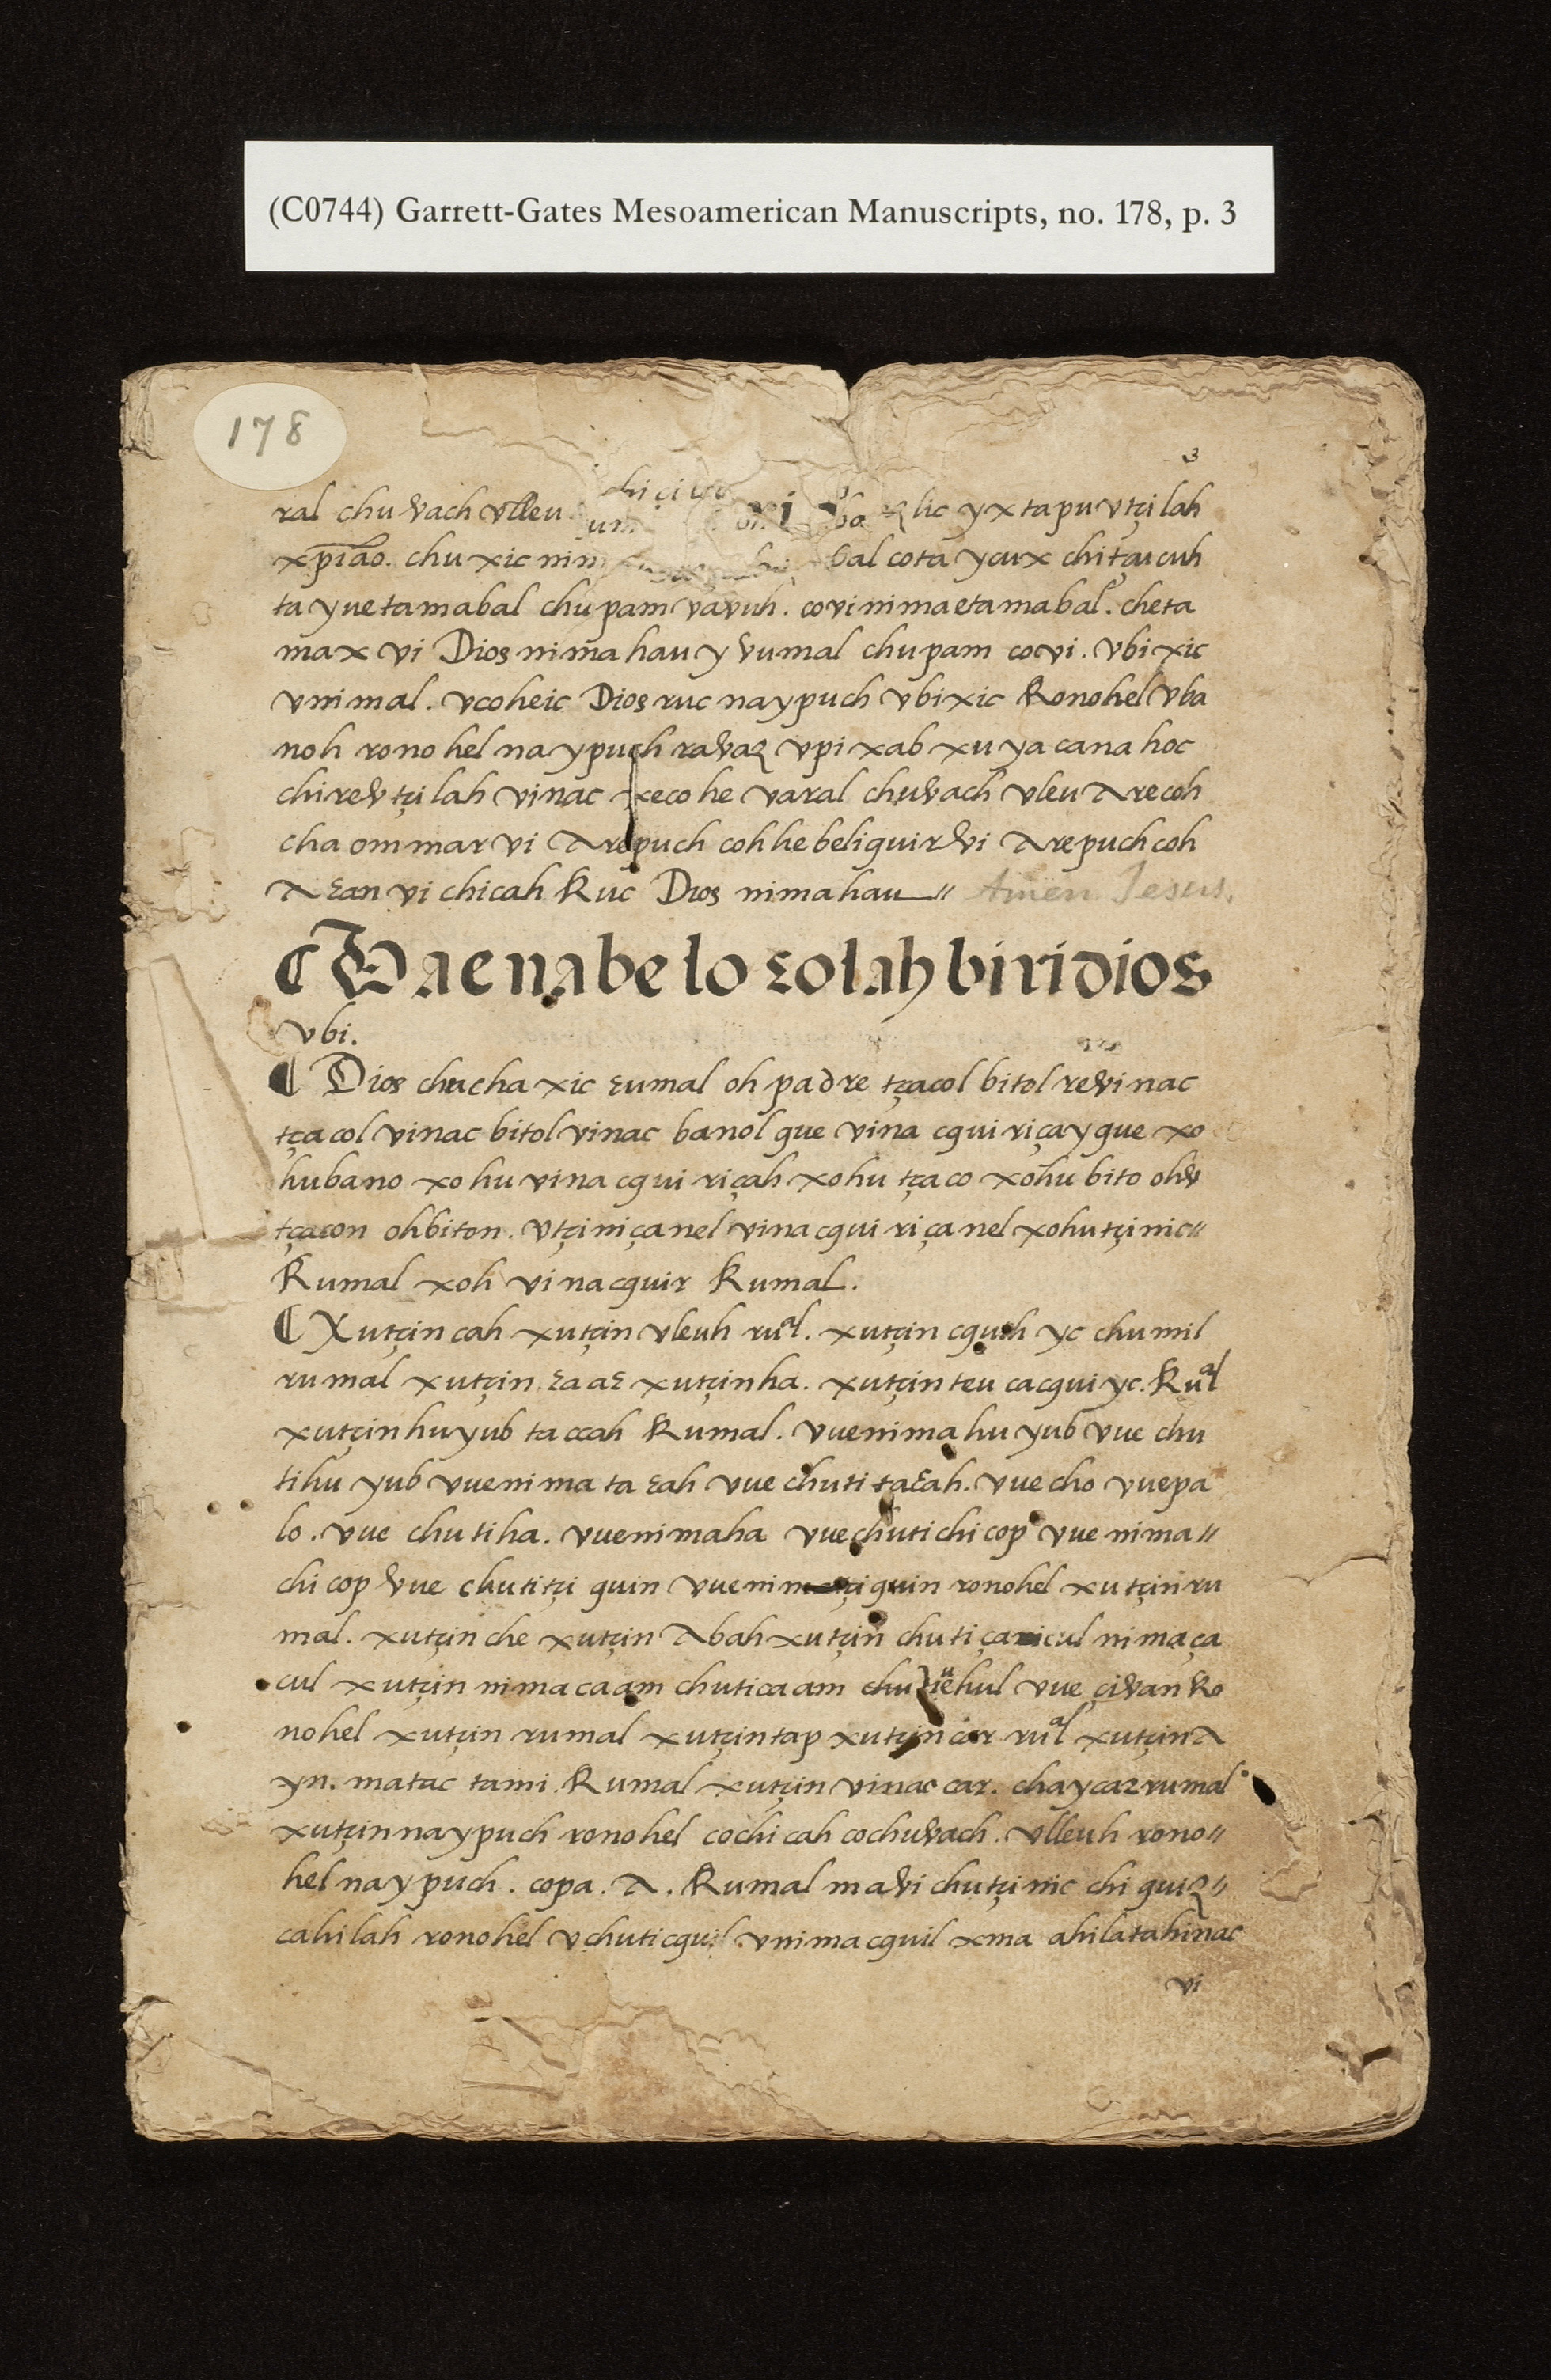 (C0744) Garrett-Gates Mesoamerican Manuscripts, no. 178, p. 3
178
3
ral chu vach ulleu lic yx tapu vtçi lah
xpiāo. chu xic nim bal cota ycux chi
ta yue tamabal chupam vavuh. covi nima etamabal. cheta
max vi Dios nima hau y vumal chupam covi. vbi xic
vnimal. vcoheic Dios ruc naypuch vbixic Ronohel vba
noh ronohel naypuch ravaꝛ vpi xab xu ya cana hoc
chirev tçi lah vinac xecohe varal chuvach vleu Arecoh
cha ommar vi Arepuch coh he beliguir vi Arepuch coh
A ꜫan vi chicah Ruc Dios nimahau〃 Amen Jesus.
¶ Wae nabe lo ꜫolah biri dios
vbi.
¶ Dios chucha xic ꜫumal oh padre tçacol bitol revinac
tçacol vinac bitol vinac banol gue vina cgui riçay gue xo
hubano xohu vina cgui riçah xohu tçaco xohu bito ohv
tçacon ohbiton. vtçiniçanel vina cgui riçanel xohutçinic〃
Rumal xoh vinacguir Rumal.
¶ Xutçin cah xutçin vleuh ruᵃl. xutçin cguih yc chumil
rumal xutçin ꜫaaꜫ xutçinha. xutçin teu cacgui yc. Ruᵃl
xutçin huyub taccah Rumal. vue nima huyub vue chu
ti huyub vue nima ta ꜫah vue chuti taꜫah. vue cho vue pa
lo. vue chuti ha. vue nimaha vue chuti chicop vue nima〃
chicop vue chuti tçi guin vue nima tçi guin ronohel xutçin ru
mal. xutçin che xutçin Abah xutçin chuti çanicul nima ça
cul xutçin nima caam chuti caam vue çivan Ro
nohel xutçin rumal xutçin tap xutçin car ruᵃl xutçin A
yn. matac tami. Rumal xutçin vinac car. chaycaꝛ rumal
xutçin naypuch ronohel cochi cah cochuvach. vlleuh rono〃
hel naypuch. copa. A. Rumal mavi chutçinic chi guiꝛ〃
cahilah ronohel vchuticguil vnimacguil xma ahilatahinac
vi